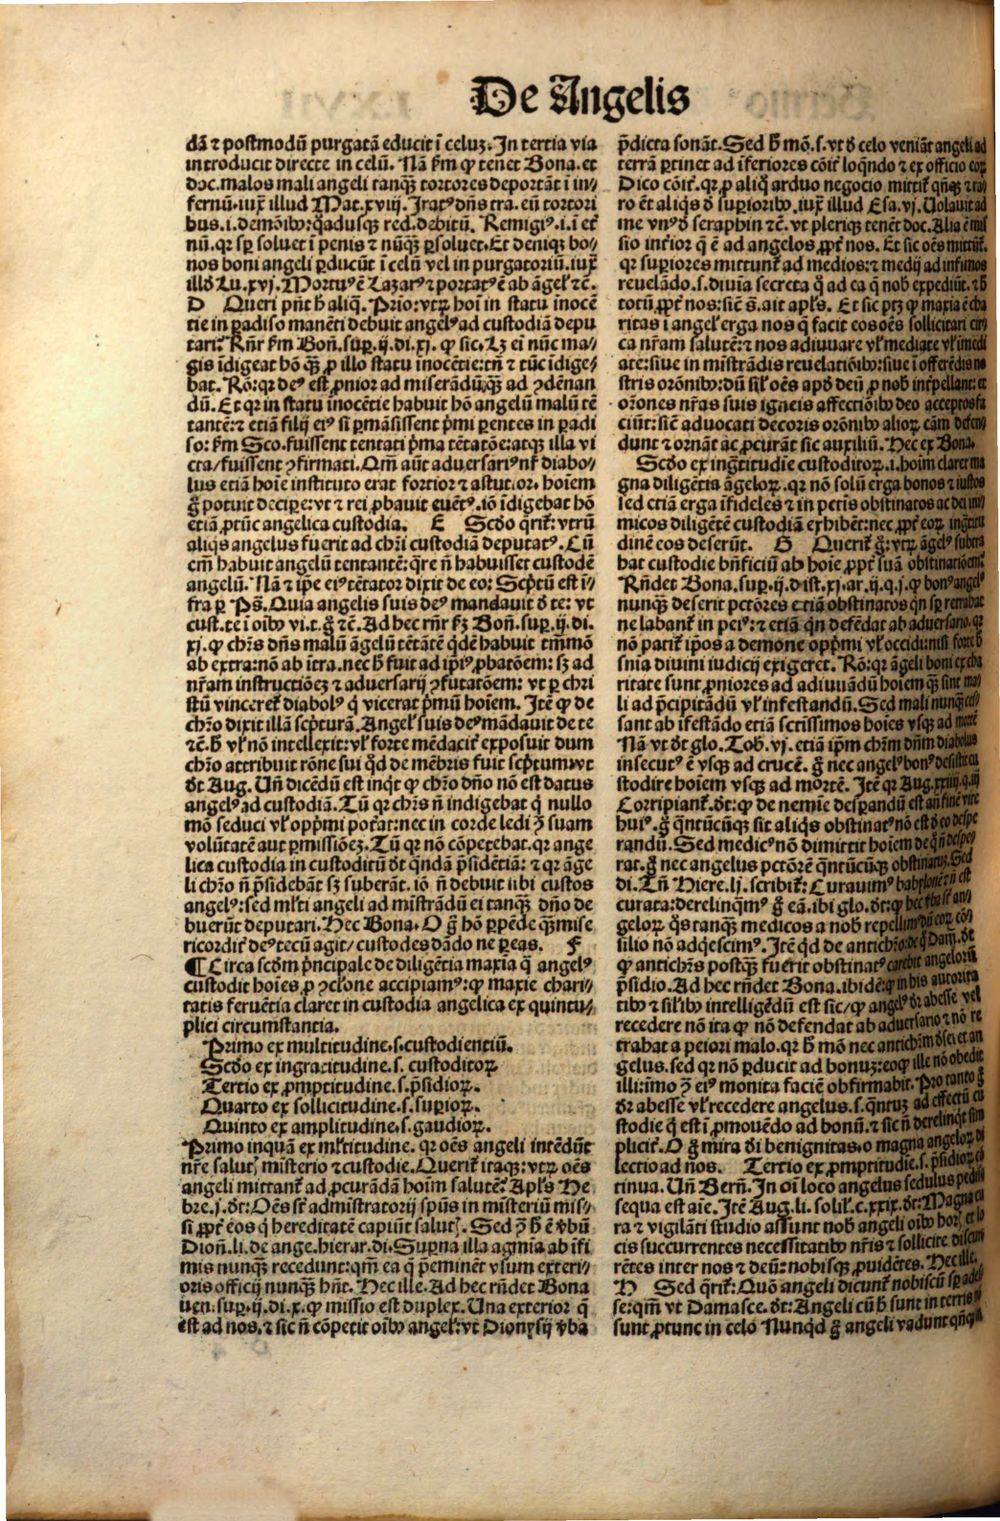 De Angelis
dā ⁊ postmodū purgatā educit ī celuꝫ. In tertia via
introducit directe in celū. Nā ẜm ꝙ tenet Bona. et
doc. malos mali angeli tanqȝ tortores deportāt ī in/
fernū. iux̄ illud Mat. xviij. Iratꝰ dn̄s tra. eū tortori
bus. i. demōibꝰ: q̄adusqȝ red. debitū. Remigiꝰ. i. ī et̄
nū. qr sꝑ soluet ī penis ⁊ nūqȝ ꝑsoluet. Et deniqȝ bo/
nos boni angeli ꝑducūt ī celū vel in purgatoriū. iux̄
illd̄ Lu. xvj. Mortuꝰ ē Lazarꝰ ⁊ portatꝰ ē ab āgel̄ ⁊c̄.
D Queri pn̄t h̄ aliq̄. Prīo: vtꝝ hoī in statu inocē
tie in ꝑadiso manēti debuit angelꝰ ad custodiā depu
tari: Rn̄r ẜm Bon. suꝑ. ij. di. xj. ꝙ sic. Lꝫ ei nūc ma/
gis īdigeat hō qȝ ꝑ illo statu inocētie: tn̄ ⁊ tūc īdige/
bat. Rō: qr deꝰ est ꝓnior ad miserādū qȝ ad ꝯdēnan
dū. Et qr in statu inocētie habuit hō angelū malū tē
tantē: ⁊ etiā filij eiꝰ si ꝑmāsissent p̄mi parentes in ꝑadi
so: ẜm Sco. fuissent tentati p̄ma tētatōe: atqȝ illa vi
cta/ fuissent ꝯfirmati. Qm̄ aūt aduersariꝰ nr̄ diabo/
lus etiā hoīe instituto erat fortior ⁊ astutior. hoīem
g̊ potuit deciꝑe: vt ⁊ rei ꝓbauit euētꝰ. iō īdigebat hō
etiā ꝓtūc angelica custodia. E Scd̄o qrit̄: vtrū
aliqs angelus fuerit ad chr̄i custodiā deputatꝰ. Cū
em̄ habuit angelū tentantē: qre n̄ habuisset custodē
angelū. Nā ⁊ ip̄e eiꝰ tētator dixit de eo: Scp̄tū est ī/
fra ꝑ Pŝ. Quia angelis suis deꝰ mandauit d̄ te: vt
cust. te ī oībꝰ vi. t. g̊ ⁊c̄. Ad hec rn̄r ẜꝫ Bon̄. suꝑ. ij. di.
xj. ꝙ chr̄s dn̄s malū āgelū tētātē qdē habuit tm̄mō
ab extra: nō ab ītra. nec h̄ fuit ad ip̄iꝰ ꝓbatōem: sꝫ ad
nr̄am instructiōeꝫ ⁊ aduersarij ꝯfutatōem: vt ꝑ chri
stū vinceret̄ diabolꝰ q̄ vicerat p̄mū hoīem. Itē ꝙ de
chr̄o dixit illā scp̄turā. Angel̄ suis deꝰ mādauit de te
⁊c̄. h̄ vl̄ nō intellexit: vl̄ forte mēdacit̄ exposuit dum
chr̄o attribuit rōne sui qd̄ de mēbris fuit scp̄tum vt
d̄t Aug. Un̄ dicēdū est inqt ꝙ chr̄o dn̄o nō est datus
angelꝰ ad custodiā. Tū qr chr̄s n̄ indigebat q̄ nullo
mō seduci vl̄ opp̄mi poter̄at: nec in corde ledi ꝯ̄ suam
volūtatē aut ꝑmissiōeꝫ. Tū qr nō cōpetebat. qr ange
lica custodia in custoditū d̄t qndā p̄sidētiā: ⁊ qr āge
li chr̄o n̄ p̄sidebāt sꝫ suberāt. iō n̄ debuit sibi custos
angelꝰ: sed ml̄ti angeli ad mīstrādū ei tanqȝ dn̄o de
buerūt deputari. Hec Bona. O g̊ hō ꝑpēde qȝ mise
ricordit̄ deꝰ tecū agit/ custodes dādo ne ꝑeas. F
¶ Circa scd̄m p̄ncipale de diligētia maxīa q̄ angelꝰ
custodit hoīes. ꝓ ꝯclone accipiamꝰ: ꝙ maxie chari/
tatis feruētia claret in custodia angelica ex quintu/
plici circumstantia.
Primo ex multitudine. s. custodientiū.
Scd̄o ex ingratitudine. s. custoditoꝝ
Tertio ex ꝓmptitudine. s. p̄sidioꝝ.
Quarto ex sollicitudine. s. suꝑioꝝ.
Quinto ex amplitudine. s. gaudioꝝ.
Primo inquā ex ml̄titudine. qr oēs angeli intēdūt
nr̄e salutꝭ misterio ⁊ custodie. Querit̄ itaqȝ: vtꝝ oēs
angeli mittant̄ ad ꝓcurādā hoīm salutē: Apl̄s He
bre. j. d̄t: Oēs st̄ admistratorij spūs in misteriū mis/
si ꝓpt̄ eos q̄ hereditatē capiūt salutꝭ. Sed ꝯ̄ h̄ ē v̄bū
Dion̄. li. de ange. hierar. di. Suꝑna illa agmīa ab īfi
mis nunqȝ recedunt: qm̄ ea q̄ p̄eminēt vsum exteri/
oris officij nunqȝ hn̄t. Hec ille. Ad hec rn̄det Bona
uen. suꝑ. ij. di. x. ꝙ missio est duplex. Una exterior q̄
est ad nos. ⁊ sic n̄ cōpetit oībꝰ angel̄: vt Dionysij v̄ba
p̄dicta sonāt. Sed h̄ mō. s. vt d̄ celo veniāt angeli ad
terrā ꝑtinet ad īferiores cōit̄ loq̄ndo ⁊ ex officio eoꝝ
Dico cōit̄. qr ꝓ aliq̄ arduo negocio mittit̄ qn̄qȝ ⁊ ra/
ro et aliqs d̄ suꝑioribꝰ. iux̄ illud Esa. vj. Uolauit ad
me vnꝰ d̄ seraphin ⁊c̄. vt pleriqȝ tenēt doc. Alia ē mis
sio int̄ior q̄ ē ad angelos ꝓpt̄ nos. Et sic oēs mittūt̄.
qr suꝑiores mittunt̄ ad medios: ⁊ medij ad infimos
reuelādo. s. diuīa secreta q̄ ad ea q̄ nob̄ expediūt. ⁊ h̄
totū ꝓpt̄ nos: sic̄ s̄. ait apl̄s. Et sic ptꝫ ꝙ maxia ē cha
ritas ī angel̄ erga nos q̄ facit eos oēs sollicitari cir/
ca nr̄am salutē: ⁊ nos adiuuare vl̄ mediate vl̄ īmedi
ate: siue in mīstrādis reuelatiōibꝰ: siue ī offerēdis no
stris orōnibꝰ: dū sil̄ oēs apd̄ deū ꝓ nob̄ int̄pellant: et
or̄ones nr̄as suis igneis affectiōibꝰ deo acceptos fa
ciūt: sic̄ aduocati decoris orōnibꝰ alioꝝ cām defen/
dunt ⁊ ornāt ac ꝓcurāt sic auxiliū. Hec ex Bona.
Scd̄o ex ingratitudīe custoditoꝝ. i. hoīm claret ma
gna diligētia āgeloꝝ. qr nō solū erga bonos ⁊ iustos
sed etiā erga īfideles ⁊ in petīs obstinatos ac dei ini/
micos diligētē custodiā exhibēt: nec ꝓpt̄ eoꝝ ingratitu
dinē eos deserūt. G Querit̄ g̊: vtꝝ āgelꝰ subtra
hat custodie bn̄ficiū ab hoīe ꝓpt̄ suā obstinatiōem:
Rn̄det Bona. suꝑ. ij. dist. xj. ar. ij. q. j. ꝙ bonꝰ angelꝰ
nunqȝ deserit pctōres etiā obstinatos qn̄ sꝑ retrahat
ne labant̄ in peiꝰ: ⁊ etiā qn̄ defēdat ab aduersario. qr
nō patit̄ ip̄os a demone opp̄mi vl̄ occidi: nisi forte h̄
snīa diuini iudicij exigeret. Rō: qr āgeli boni ex cha
ritate sunt ꝓniores ad adiuuādū hoīem qȝ sint ma/
li ad p̄cipitādū vl̄ infestandū. Sed mali nunqȝ ces/
sant ab īfestādo etiā sctissimos hoīes vsqȝ ad mortē
Nā vt d̄t glo. Tob̄. vj. etiā ip̄m chr̄m dn̄m diabolus
insecutꝰ ē vsqȝ ad crucē. g̊ nec angelꝰ bonꝰ desistit cu
stodire hoīem vsqȝ ad mortē. Itē qr Aug. xxiij. q. iiij
Corripiant̄. d̄t: ꝙ de nemīe desꝑandū est an̄ finē vite
huiꝰ. g̊ q̄ntūcūqȝ sit aliqs obstinatꝰ nō est d̄ eo despe
randū. Sed medicꝰ nō dimittit hoīem de q̄ n̄ despe/
rat. g̊ nec angelus pctōrē q̄ntūcūqȝ obstinatū. Sed
di. Tn̄ Hiere. lj. scribit̄: Curauimꝰ babylonē: ⁊ n̄ est
curata: derelinqm̄ꝰ g̊ eā. ibi glo. d̄t: ꝙ hec v̄ba st̄ an/
geloꝝ. q̄s tanqȝ medicos a nob̄ repellim̄ dū eoꝝ cōn/
silio nō adq̄escimꝰ. Itē qd̄ de antichr̄o: de q̄ Dam. d̄t
ꝙ antichr̄s postqȝ fuerit obstinatꝰ carebit angelorū
p̄sidio. Ad hec rn̄det Bona. ibidē: ꝙ in his autorita
tibꝰ ⁊ sil̄ibꝰ intelligēdū est sic/ ꝙ angelꝰ d̄r abesse vel
recedere nō ita ꝙ nō defendat ab aduersario ⁊ nō re
trahat a peiori malo. qr h̄ mō nec antichr̄m d̄seret an
gelus. sed qr nō ꝑducit ad bonuꝫ: eoꝙ ille nō obedit
illi: īmo ꝯ̄ eiꝰ monita faciē obfirmabit. Pro tanto g̊
d̄r abesse vl̄ recedere angelus. s. q̄ntuꝫ ad effectū cu
stodie q̄ est ī ꝓmouēdo ad bonū. ⁊ sic n̄ derelinqt sim
plicit̄. O g̊ mira d̄i benignitas. o magna angeloꝝ di
lectio ad nos. Tertio ex ꝓmptitudīe. s. p̄sidioꝝ cō
tinua. Un̄ Bern̄. In oī loco angelus sedulus pedi/
sequa est aīe. Itē Aug. li. solil̄. c. xxix. d̄t: Magna cu
ra ⁊ vigilāti studio assunt nob̄ angeli oībꝰ hor̄. et lo
cis succurrentes necessitatibꝰ nr̄is ⁊ sollicite discur
rētes inter nos ⁊ deū: nobisqȝ ꝓuidētes. Hec ille.
H Sed qrit̄: Quō angeli dicunt̄ nobiscū sꝑ ades/
se: qm̄ vt Damasce. d̄t: Angeli cū h̄ sunt in terris n̄
sunt ꝓtunc in celo Nunqd̄ g̊ angeli vadunt qn̄qȝ